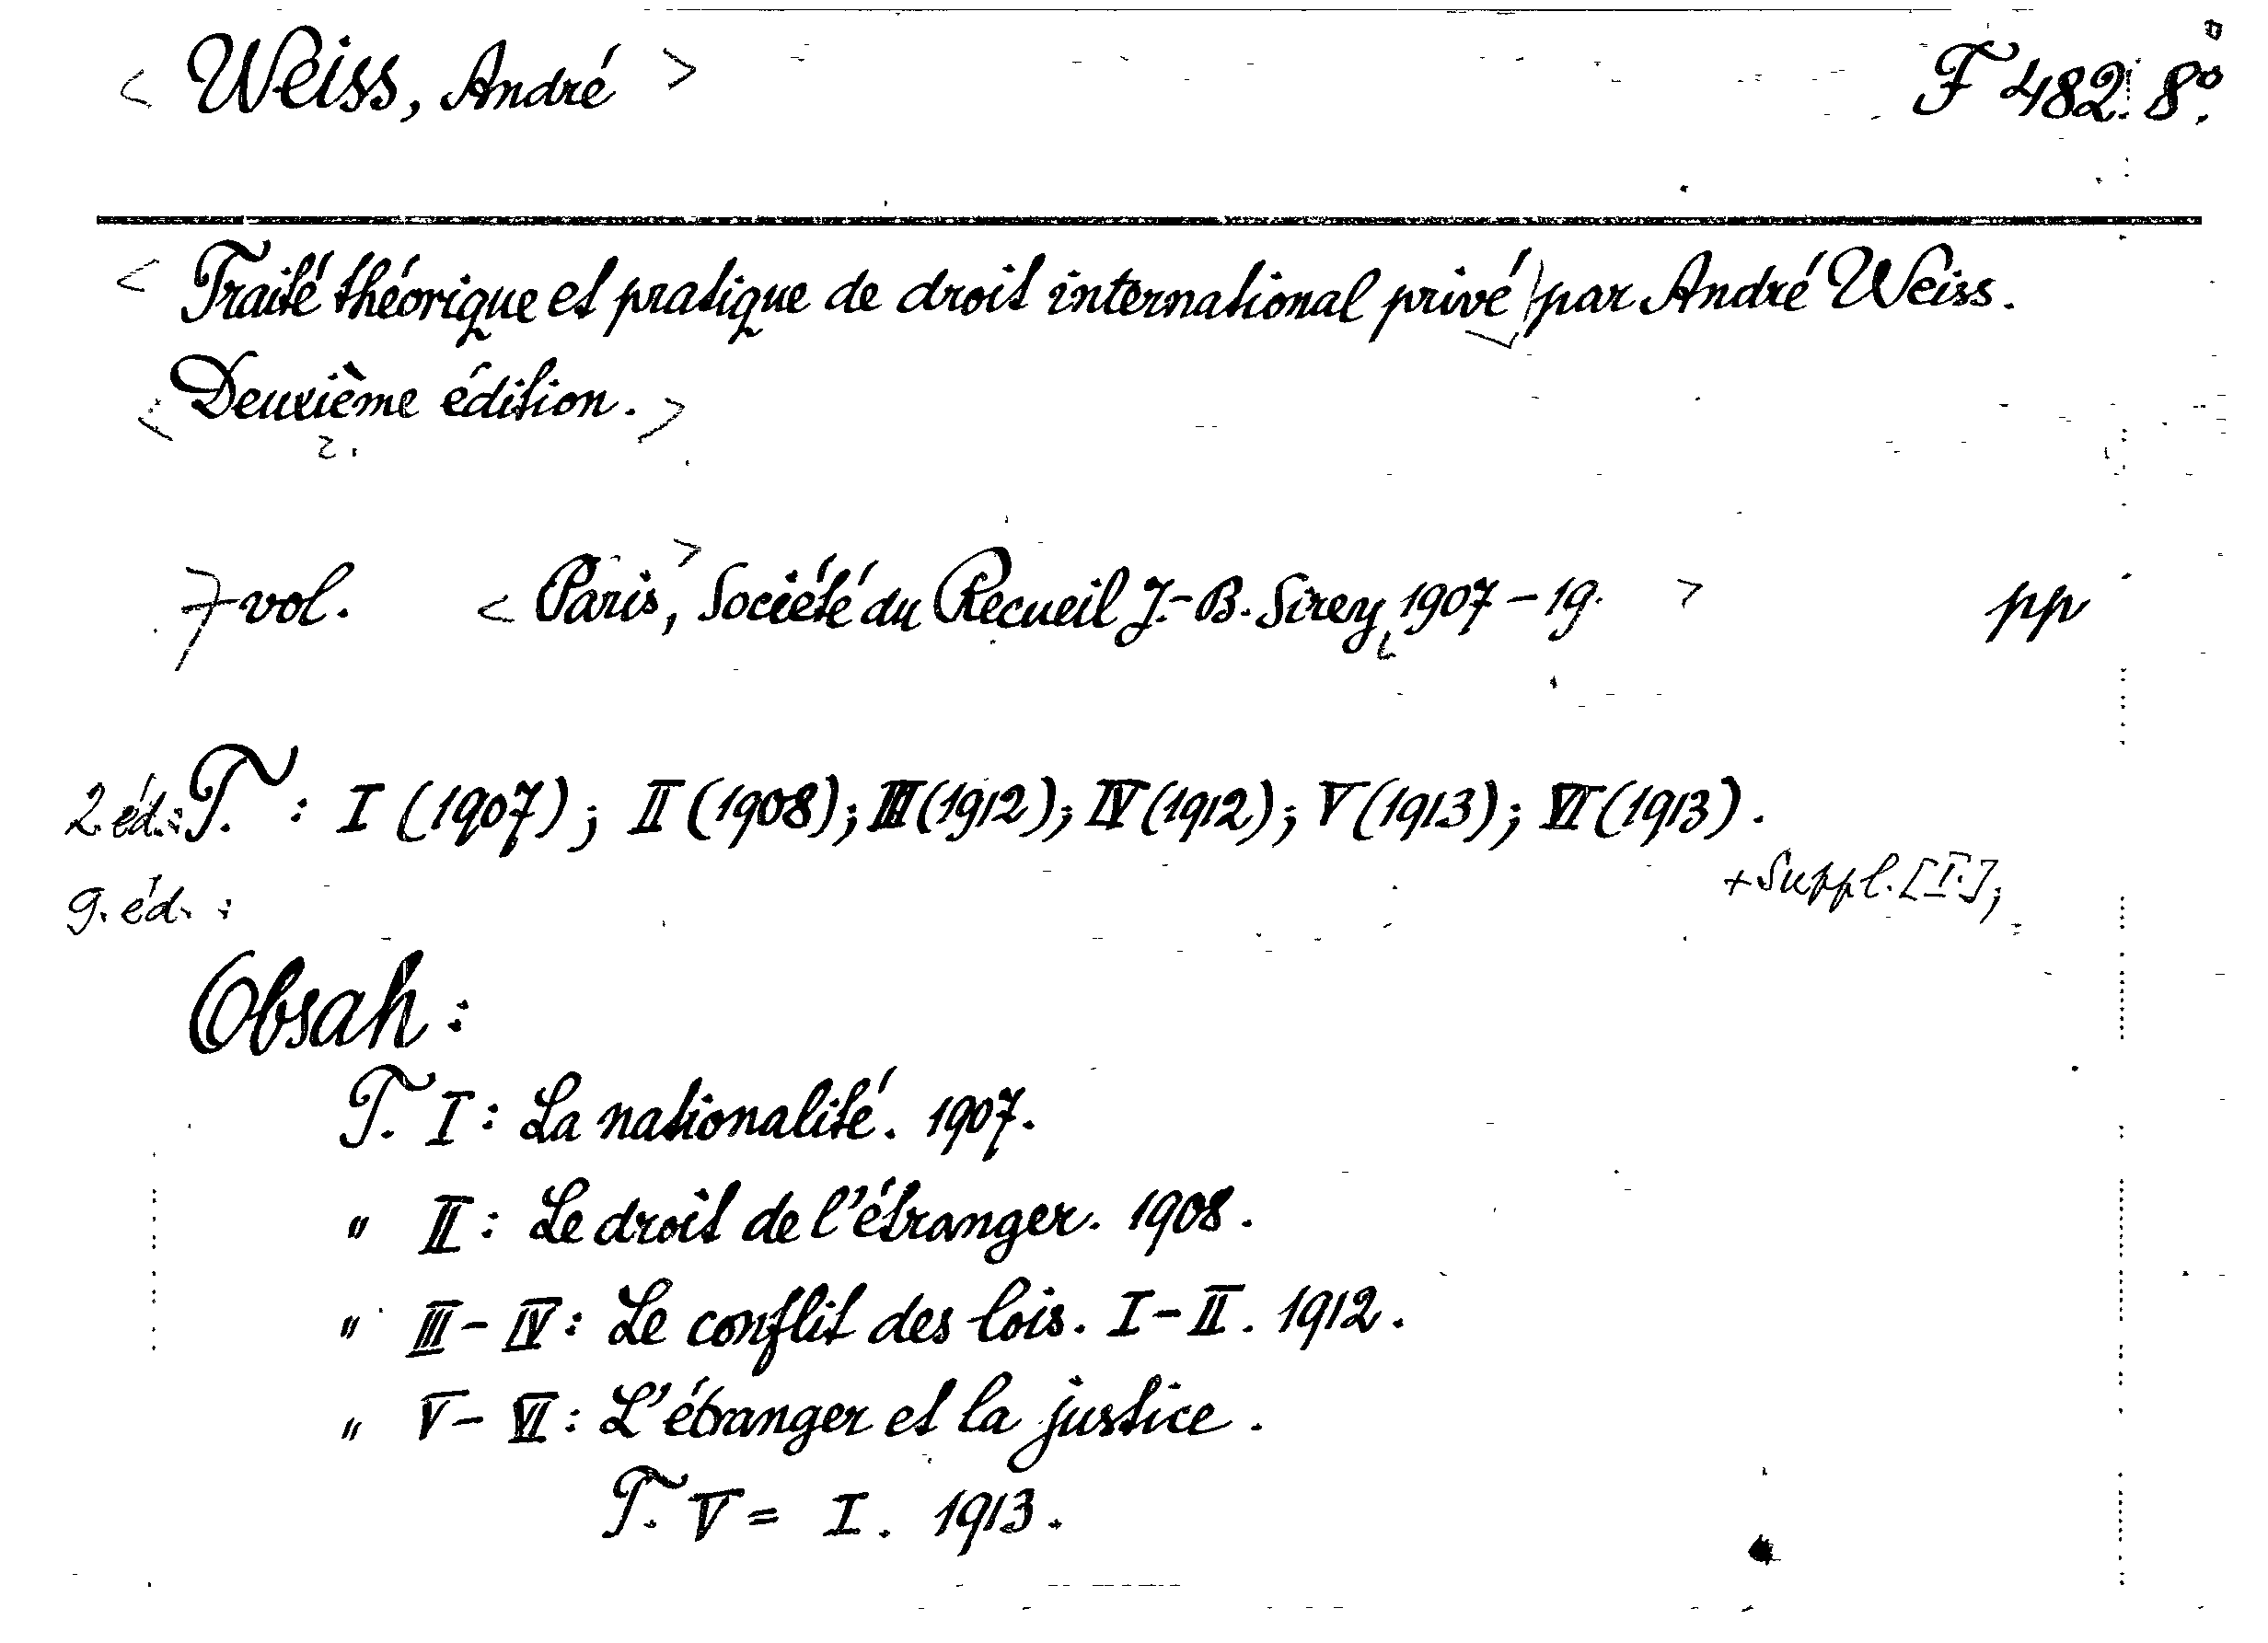 < Weiss, André > F 482. 8°.
< Traité théorique et pratique de droit international privé / par André Weiss.
< Deuxième édition. >
2.
7 vol. < Paris, > Société du Recueil J.-B. Sirey, 1907-19. > pp
2. éd.: T. : I (1907); II (1908); III (1912); IV (1912); V (1913); VI (1913).
+ Suppl. [I.];
9. éd. :
Obsah :
T. I : La nationalité. 1907.
" II : Le droit de l'étranger. 1908.
" III - IV : Le conflit des lois. I - II. 1912.
" V - VI : L'étranger et la justice.
T. V = I. 1913.